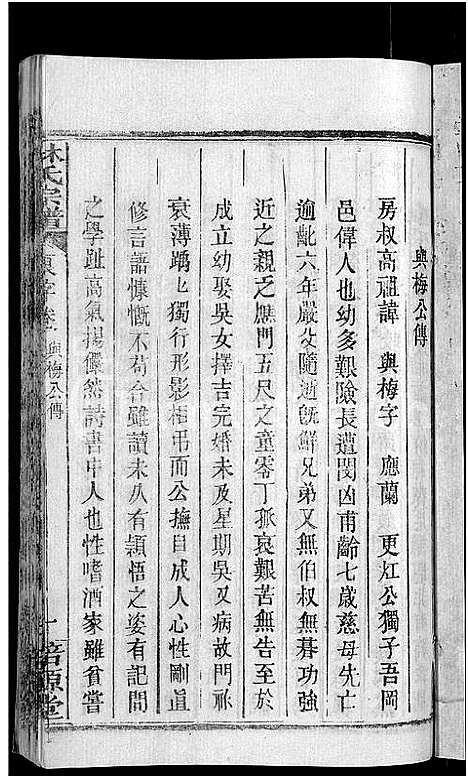 興梅公傳
房叔高祖諱 興梅字 應蘭 更灴公獨子吾岡
邑偉人也幼多艱險長遭閔凶甫齡七歲慈母先亡
逾齔六年嚴父隨逝旣鮮兄弟又無伯叔無朞功強
近之親乏應門五尺之童零丁孤哀艱苦無告至於
成立幼娶吳女擇吉完婚未及星期吳又病故門祚
衰薄踽踽獨行形影相弔而公撫自成人心性剛直
修言語慷慨不苟合雖讀未久有穎悟之姿有記問
之學趾高氣揚儼然詩書中人也性嗜酒家雖貧嘗
林氏宗譜
卷 興梅公傳
一